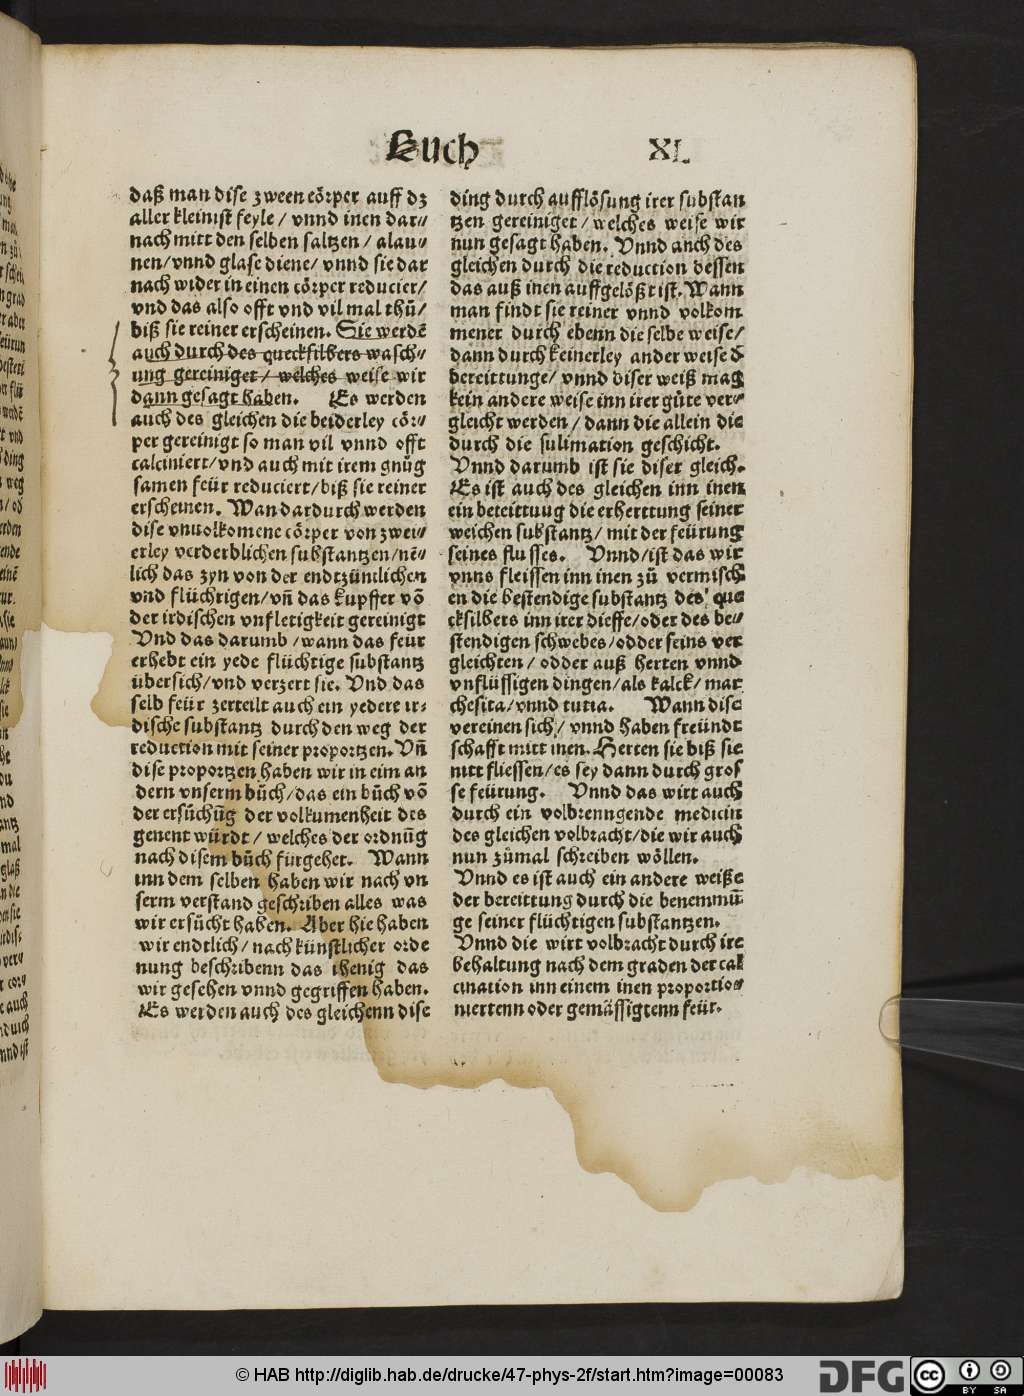 Buch XL
daß man dise zween cörper auff dz
aller kleinist feyle / vnnd inen dar⸗
nach mitt den selben saltzen / alau⸗
nen/vnnd glase diene/ vnnd sie dar
nach wider in einen cörper reducier/
vnd das also offt vnd vil mal thů/
biß sie reiner erscheinen. Sie werdē
auch durch des quecksilbers wasch⸗
ung gereiniget / welches weise wir
dann gesagt haben. Es werden
auch des gleichen die beiderley cör⸗
per gereinigt so man vil vnnd offt
calciniert/vnd auch mit irem gnůg
samen feür reduciert/biß sie reiner
erscheinen. Wan dardurch werden
dise vnuolkomene cörper von zwei⸗
erley verderblichen substantzen/nē⸗
lich das zyn von der endtzündlichen
vnd flüchtigen/vñ das kupffer võ
der irdischen vnfletigkeit gereinigt
Vnd das darumb / wann das feur
erhebt ein yede flüchtige substantz
übersich/vnd verzert sie. Vnd das
selb feür zerteilt auch ein yedere ir⸗
dische substantz durch den weg der
reduction mit seiner proportzen. Vñ
dise proportzen haben wir in eim an
dern vnserm bůch/das ein bůch võ
der ersůchũg der volkumenheit des
genent würdt / welches der ordnũg
nach disem bůch fürgehet. Wann
inn dem selben haben wir nach vn
serm verstand geschriben alles was
wir ersůcht haben. Aber hie haben
wir endtlich/nach künstlicher orde
nung beschribenn das ihenig das
wir gesehen vnnd gegriffen haben.
Es werden auch des gleichenn dise
ding durch aufflösung irer substan
tzen gereiniget / welches weise wir
nun gesagt haben. Vnnd anch des
gleichen durch die reduction dessen
das auß inen auffgelößt ist. Wann
man findt sie reiner vnnd volkom
mener durch ebenn die selbe weise/
dann durch keinerley ander weise d̄
bereittunge/ vnnd diser weiß mag
kein andere weise inn irer güte ver⸗
gleicht werden/ dann die allein die
durch die sulimation geschicht.
Vnnd darumb ist sie diser gleich.
Es ist auch des gleichen inn inen
ein beteittuug die erherttung seiner
weichen substantz / mit der feürung
seines flusses. Vnnd/ist das wir
vnns fleissen inn inen zů vermisch
en die bestendige substantz des que
cksilbers inn irer dieffe/oder des be⸗
stendigen schwebes/odder seins ver
gleichten / odder auß herten vnnd
vnflüssigen dingen/als kalck/ mar
chesita/vnnd tutia. Wann dise
vereinen sich/ vnnd haben freündt
schafft mitt inen. Herten sie biß sie
nitt fliessen/es sey dann durch gros
se feürung. Vnnd das wirt auch
durch ein volbrenngende medicin
des gleichen volbracht/die wir auch
nun zůmal schreiben wöllen.
Vnnd es ist auch ein andere weiße
der bereittung durch die benemmũ
ge seiner flüchtigen substantzen.
Vnnd die wirt volbracht durch ire
behaltung nach dem graden der cal
cination inn einem inen proportio⸗
niertenn oder gemässigtenn feür.
© HAB http://diglib.hab.de/drucke/47-phys-2f/start.htm?image=00083
DFG
cc BY SA